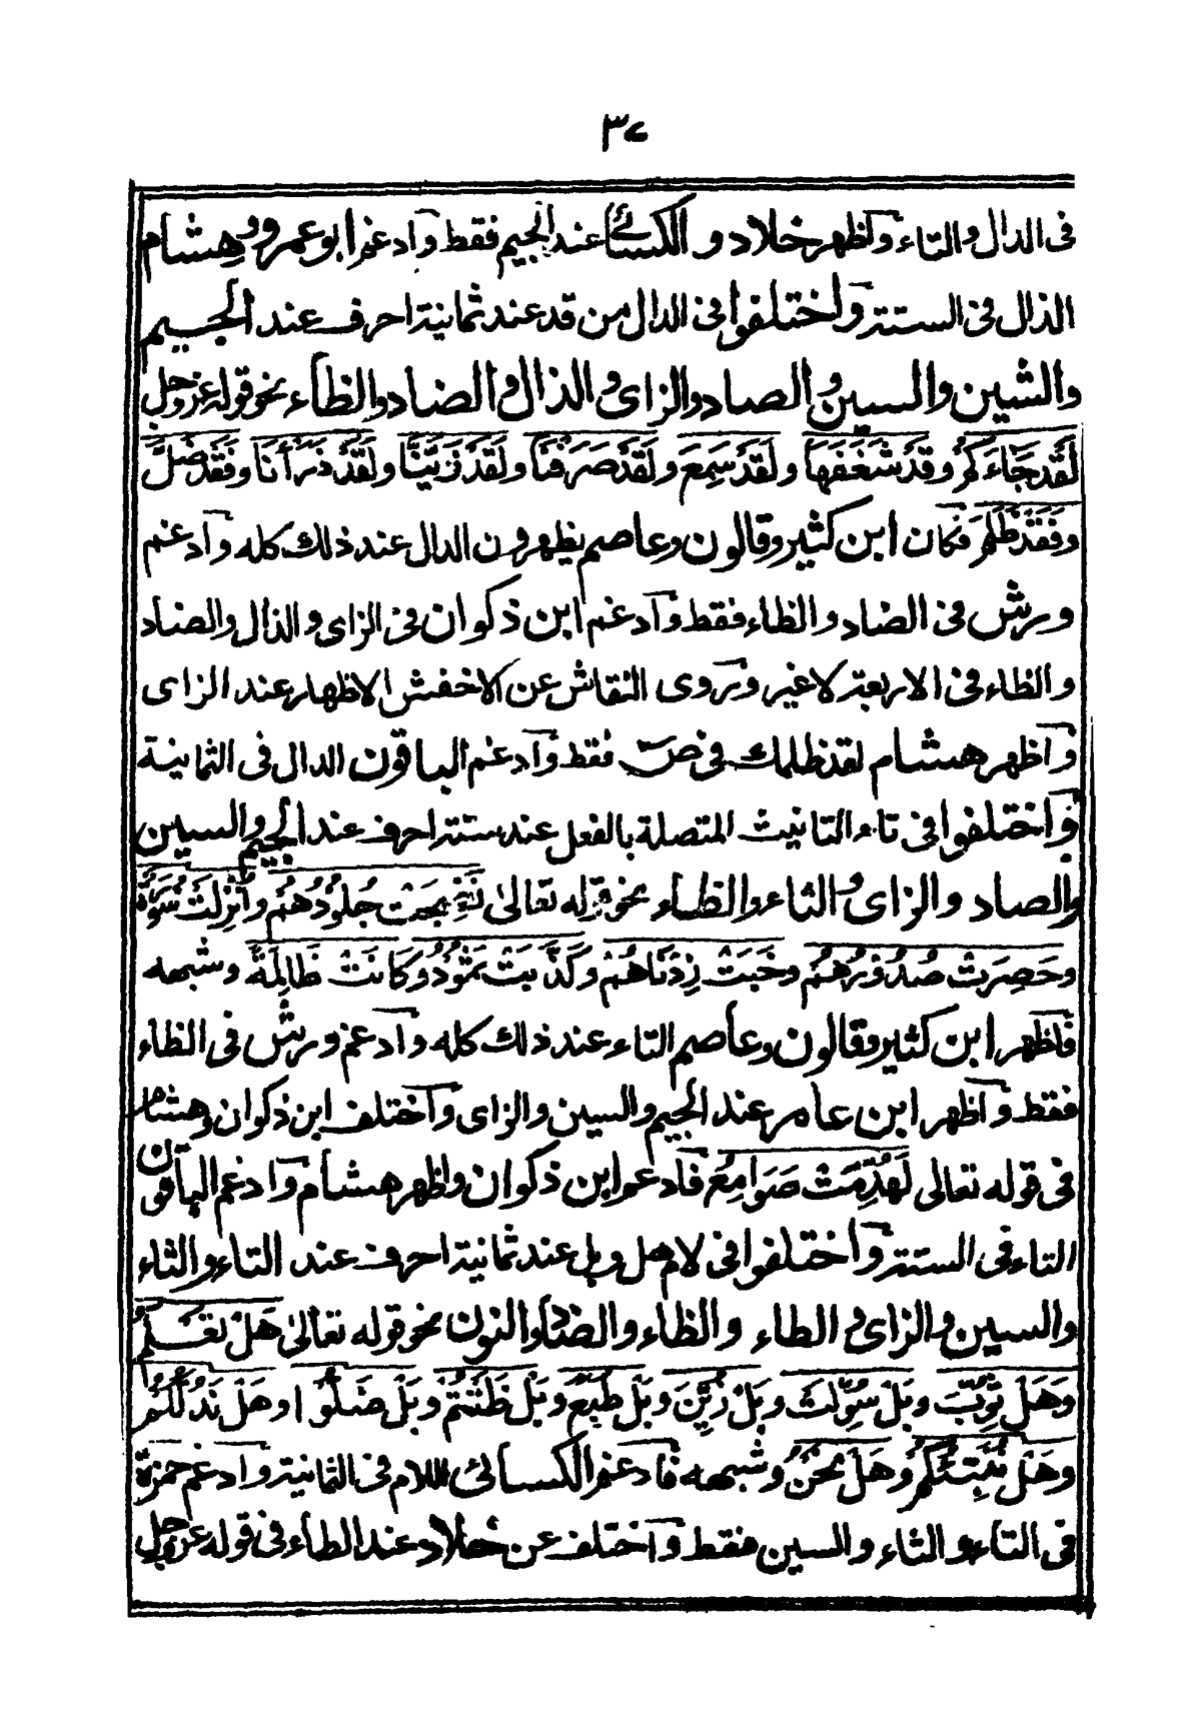 ٣٧
فى الدال والتاء واظهر خلاد والكسائى عند الجيم فقط وادغم ابو عمرو وهشام
الذال فى الستة واختلفوا فى الدال من قد عند ثمانية احرف عند الجيم
والشين والسين والصاد والزاى والذال والضاد والظاء نحو قوله عز وجل
لَقَدْ جَاءَكُمْ وقَدْ شَغَفَهَا ولَقَدْ سَمِعَ ولَقَدْ صَرَفْنَا ولَقَدْ زَيَّنَّا ولَقَدْ ذَرَأْنَا وفَقَدْ ضَلَّ
وفَقَدْ ظَلَمَ فكان ابن كثير وقالون وعاصم يظهرون الدال عند ذلك كله وادغم
ورش فى الضاد والظاء فقط وادغم ابن ذكوان فى الزاى والذال والضاد
والظاء فى الاربعة لا غير وروى النقاش عن الاخفش الاظهار عند الزاى
واظهر هشام لقد ظلمك فى ص فقط وادغم الباقون الدال فى الثمانية
واختلفوا فى تاء التانيث المتصلة بالفعل عند ستة احرف عند الجيم والسين
والصاد والزاى والثاء والظاء نحو قوله تعالى نَضِجَتْ جُلُودُهُمْ وأُنْزِلَتْ سُورَةٌ
وحَصِرَتْ صُدُورُهُمْ وخَبَتْ زِدْنَاهُمْ وكَذَّبَتْ ثَمُودُ وكَانَتْ ظَالِمَةً وشبهه
فاظهر ابن كثير وقالون وعاصم التاء عند ذلك كله وادغم ورش فى الظاء
فقط واظهر ابن عامر عند الجيم والسين والزاى واختلف ابن ذكوان وهشام
فى قوله تعالى لَهُدِّمَتْ صَوَامِعُ فادغم ابن ذكوان واظهر هشام وادغم الباقون
التاء فى الستة واختلفوا فى لام هل وبل عند ثمانية احرف عند التاء والثاء
والسين والزاى والطاء والظاء والضاد والنون نحو قوله تعالى هَلْ تَعْلَمُ
وَهَلْ ثُوِّبَ وبَلْ سَوَّلَتْ وبَلْ زُيِّنَ وبَلْ طَبَعَ وبَلْ ظَنَنْتُمْ وبَلْ ضَلُّوا وهَلْ نَدُلُّكُمْ
وهَلْ نُنَبِّئُكُمْ وهَلْ نَحْنُ وشبهه فادغم الكسائى اللام فى الثمانية وادغم حمزة
فى التاء والثاء والسين فقط واختلف عن خلاد عند الطاء فى قوله عز وجل